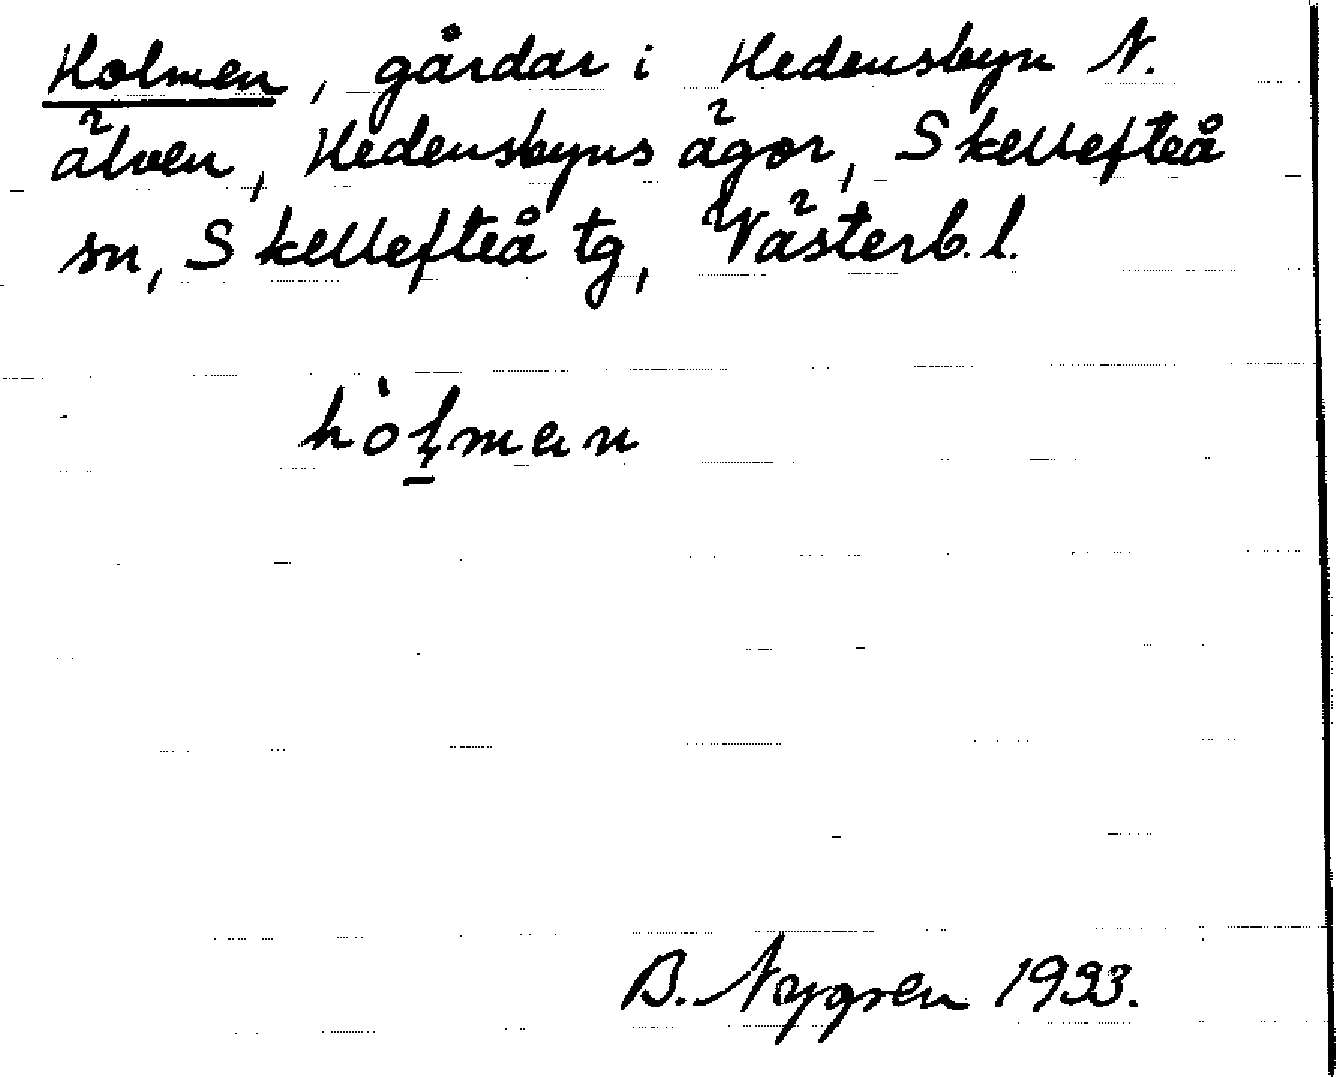 Holmen, gårdar i Hedensbyn N.
älven, Hedensbyns ägor, Skellefteå
sn, Skellefteå tg, Västerb. l.
hòl̠man
B. Nygren 1933.